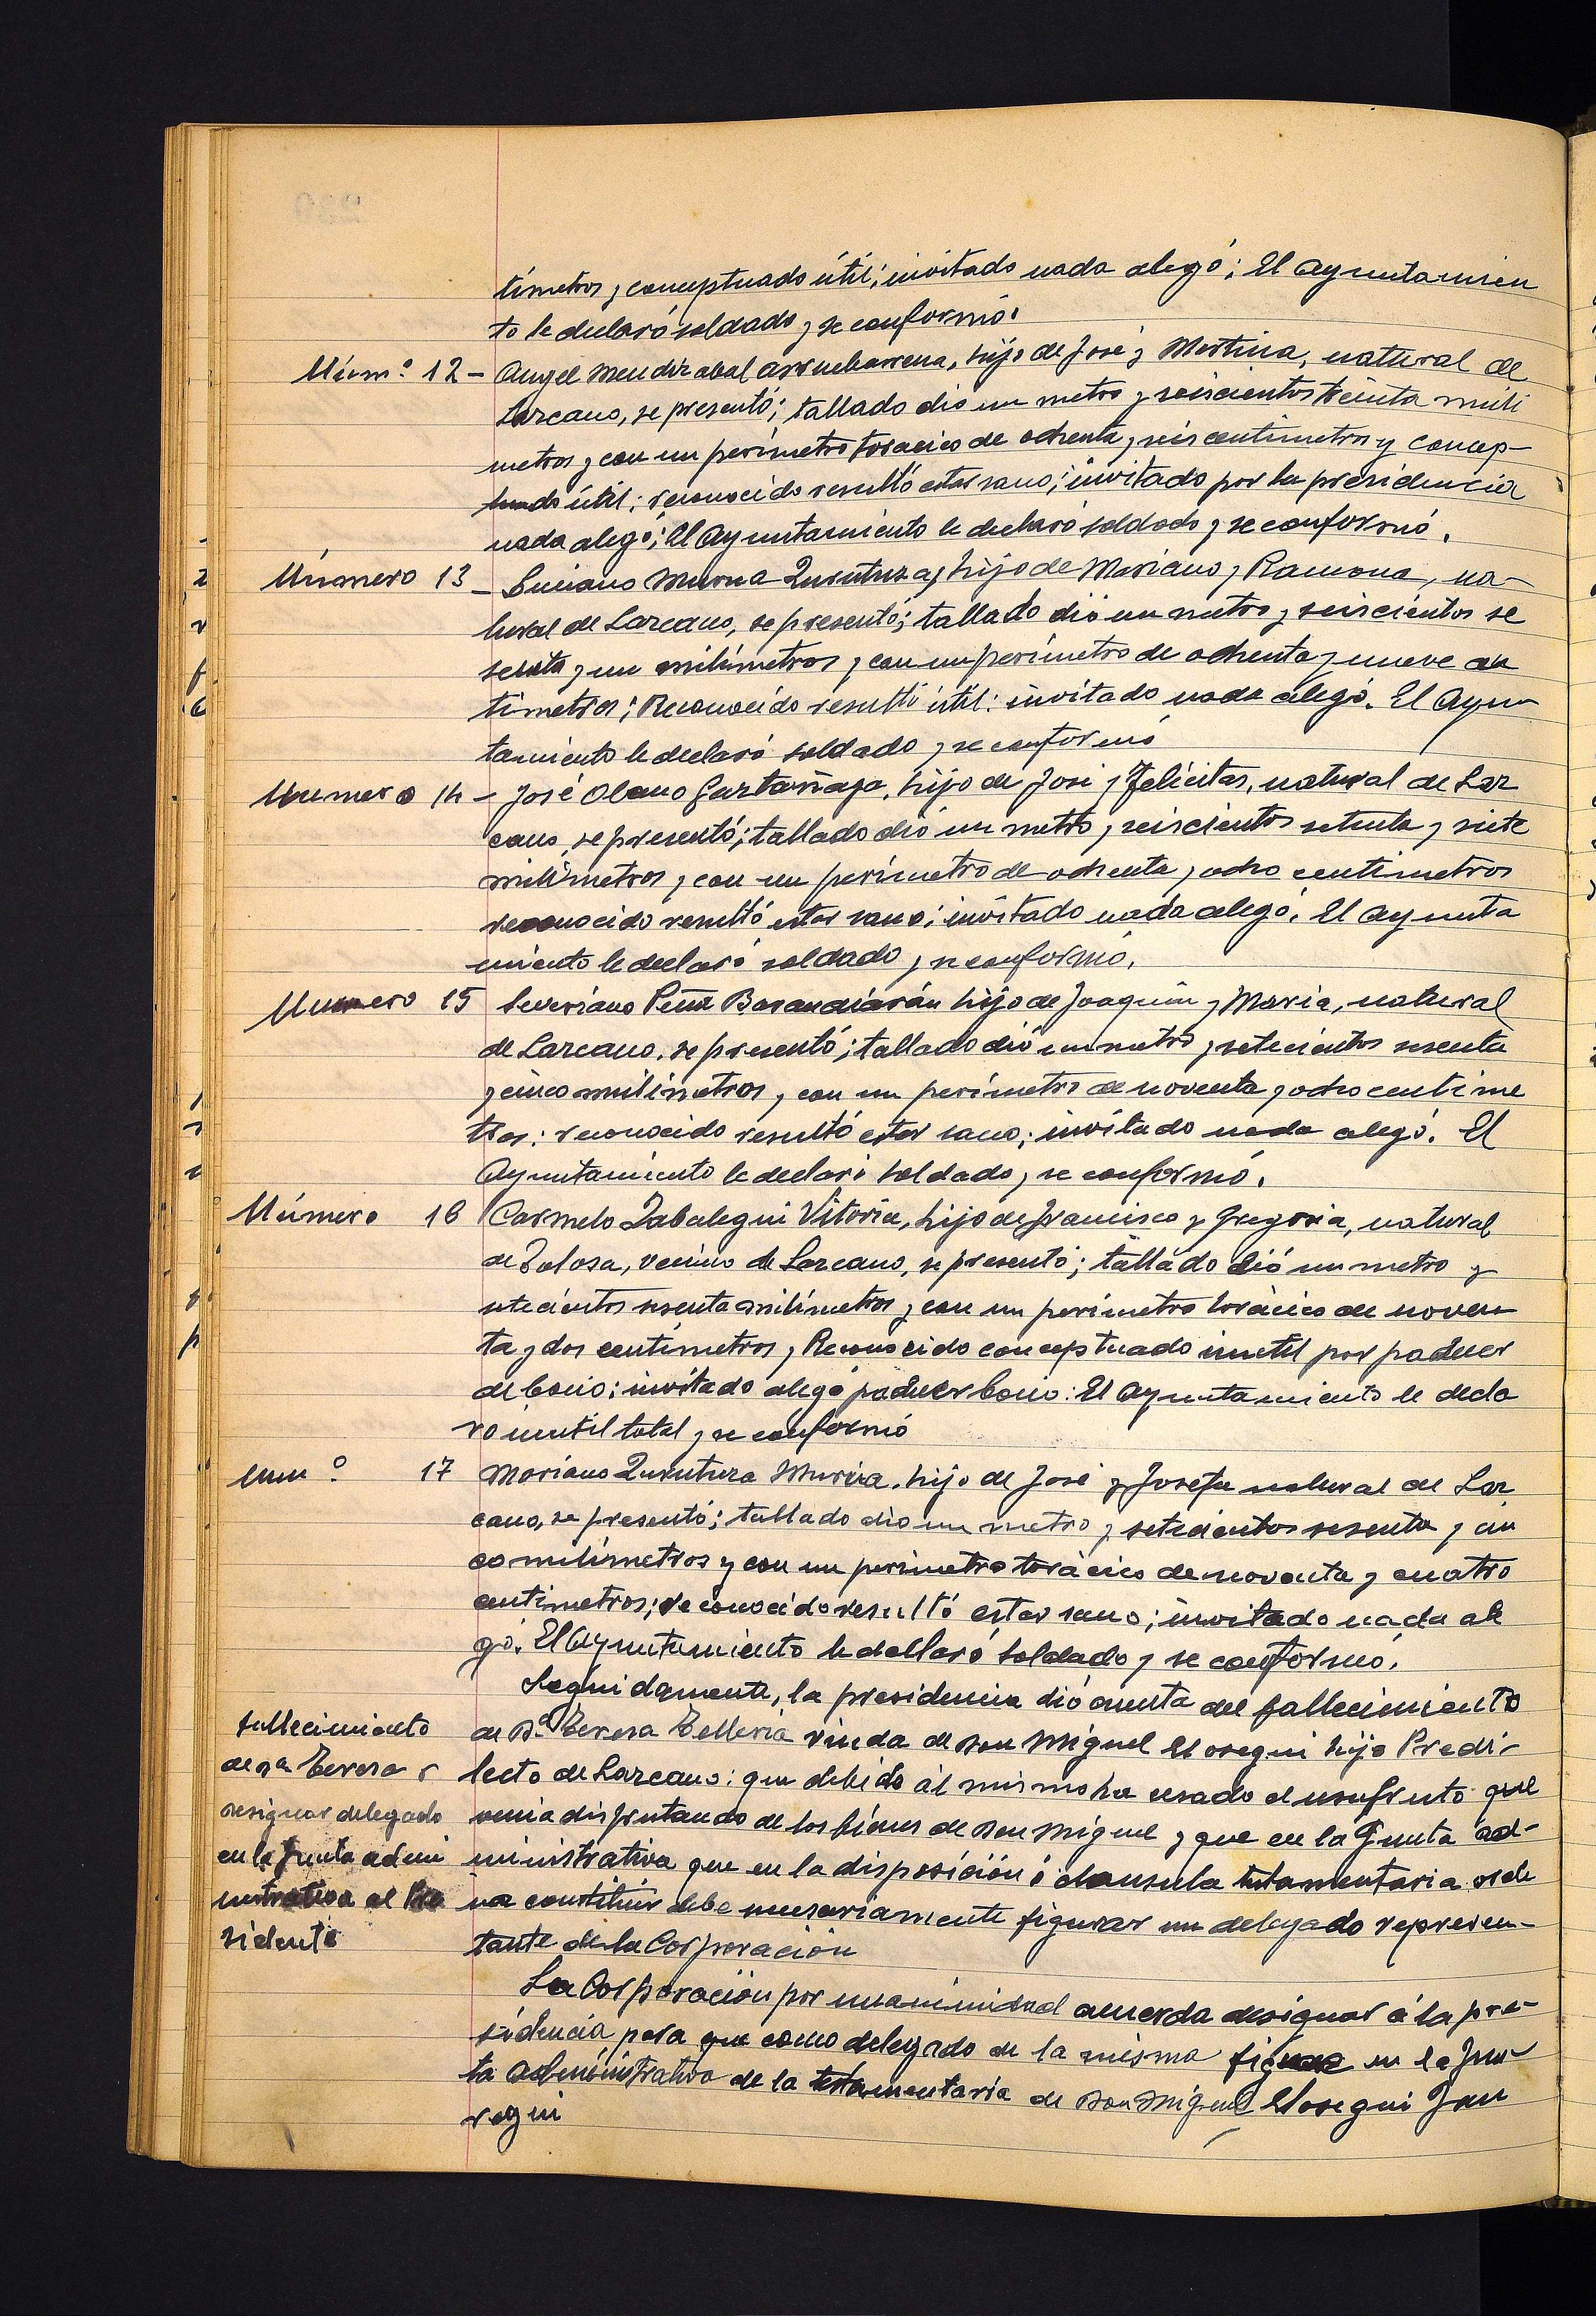 tímetros y conceptuado útil; invitado nada alegó; El Ayuntamien
to le declaró soldado y se conformó.
Núm.º 12 - Angel Mendizabal Arruebarrena, hijo de José y Martina, natural de
Lazcano, se presentó; tallado dio un metro y seiscientos treinta mili
metros y con un perímetro toracico de ochenta y seis centimetros y concep-
tuado útil; reconocido resultó estar sano; invitado por la presidencia
nada alegó; El Ayuntamiento le declaró soldado y se conformó.
Número 13 - Luciano Murua Inventuza, hijo de Mariano y Ramona, na-
tural de Lazcano, se presentó; tallado dió un metro y seiscientos se
senta y un milímetros y con un perímetro de ochenta y nueve cen
tímetros; Reconocido resultó útil: invitado nada alegó. El Ayun
tamiento le declaró soldado y se conformó
Numero 14 - José Olano Gartañaga, hijo de José y Felicitas, natural de Laz
cano, se presentó; tallado dió un metro y seiscientos setenta y siete
milímetros y con un perímetro de ochenta y ocho centimetros
reconocido resultó estar sano; invitado nada alegó. El Ayunta
miento le declaró soldado y se conformó.
Numero 15 Severiano Peña Barandiarán hijo de Joaquin y Maria, natural
de Lazcano, se presentó; tallado dió un metro y setecientos sesenta
y cinco milímetros y con un perímetro de noventa y ocho centime
tros: reconocido resultó estar sano; invitado nada alegó. El
Ayuntamiento le declaró soldado y se conformó.
Número 16 Carmelo Zabalegui Vitoria, hijo de Francisco y Gregoria, natural
de Tolosa, vecino de Lazcano, se presentó; tallado dió un metro y
setecientos sesenta milímetros y con un perímetro torácico de noven
ta y dos centímetros y Reconocido conceptuado inutil por padecer
de bocio; invitado alegó padecer bocio: El Ayuntamiento le decla
ro inutil total y se conformó
num º 17 Mariano Murua, hijo de José y Josefa natural de Laz
cano, se presentó; tallado dio un metro y setecientos sesenta y cin
co milímetros y con un perimetro torácico de noventa y cuatro
centimetros; reconocido resultó estar sano; invitado nada ale
gó. El Ayuntamiento le declaró soldado y se conformó.
Seguidamente, la presidencia dió cuenta del fallecimiento
fallecimiento
de D.ª Teresa Telleria viuda de don Miguel Elosegui hijo Predi-
de Dª Teresa y
lecto de Lazcano: que debido al mismo ha cesado el usufruto que
designar delegado
venia disfrutando de los bienes de don Miguel y que en la Junta ad-
en la Junta admi
ministrativa que en la disposición ó clausula testamentaria orde
nistrativa al Pre
na constituir debe necesariamente figurar un delegado represen-
sidente
tante de la Corporación
La Corporación por unanimidad acuerda designar á la pre-
sidencia para que como delegado de la misma figure en la Jun-
ta administrativa de la testamentaria de don Miguel Elosegui Jau
regui